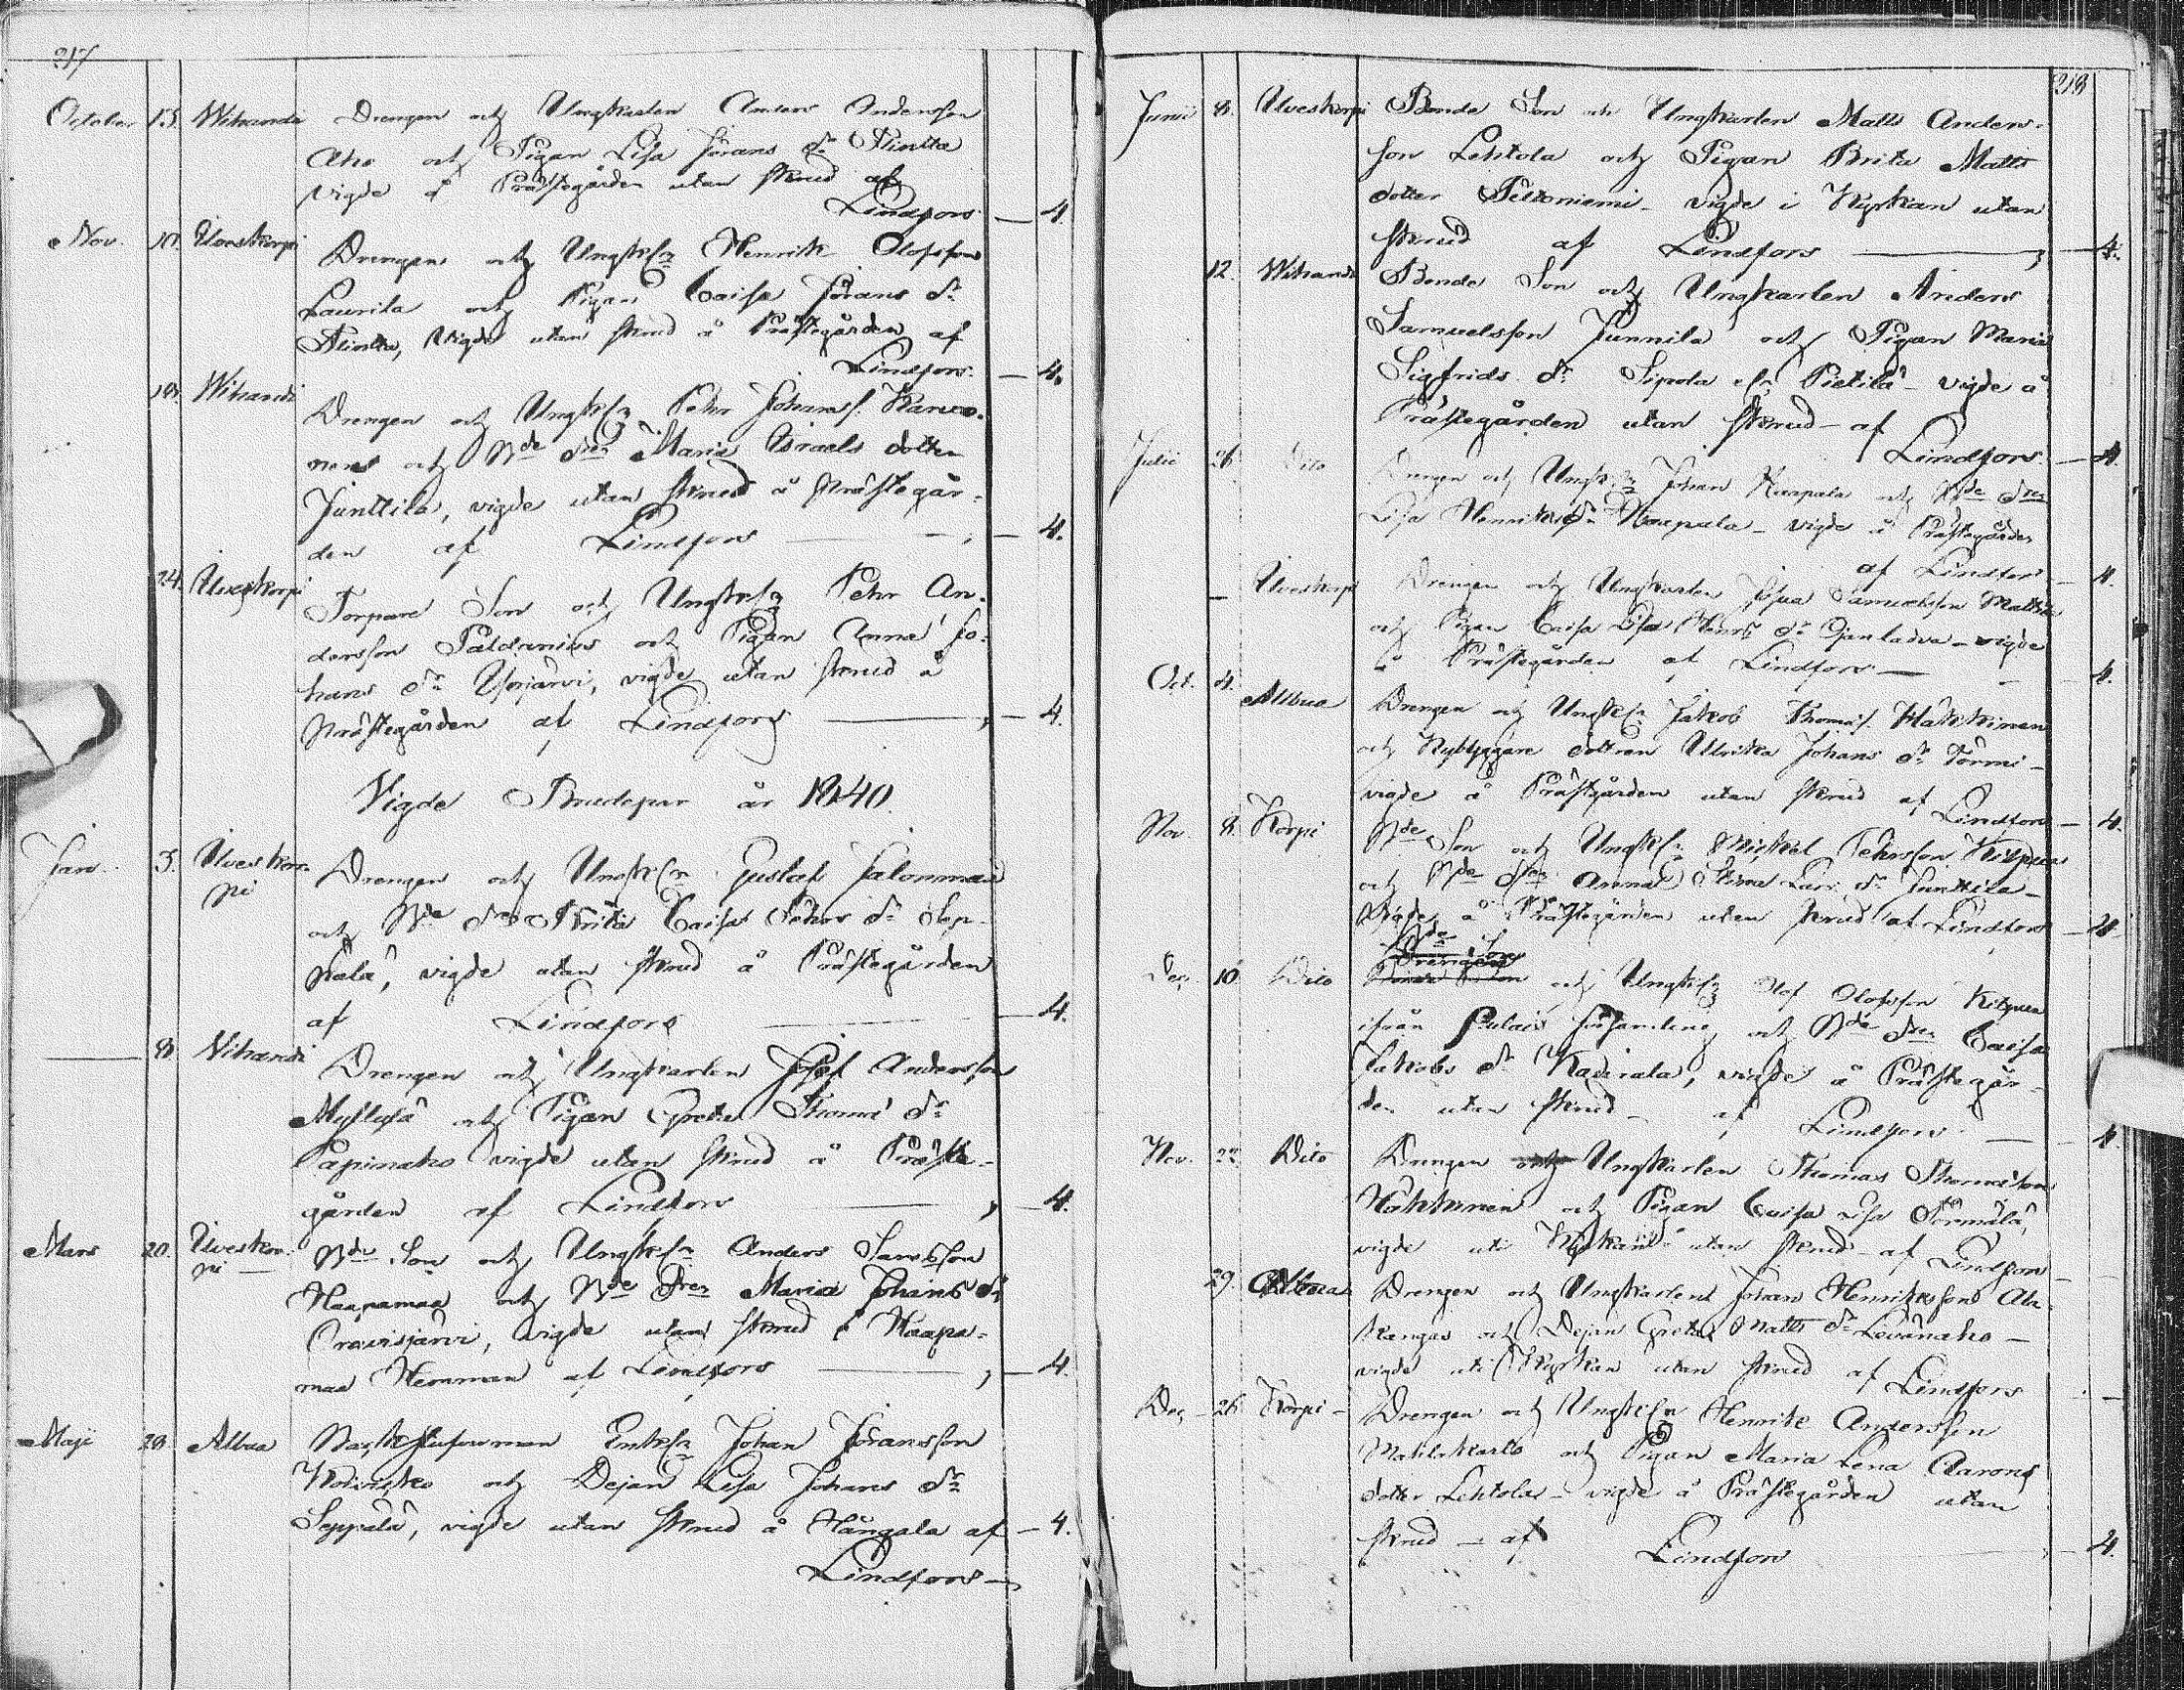 217
October 13. Wihandi Drengen och Ungkarlen Anders Andersson
Aho och Pigan Lisa Jörans dr Flinta
vigde å Prästegården utan skrud af
Lindfors — 4.
Nov. 10. Ulveskorpi Drengen och Ungk. Henrik Olofsson
Laurila och Pigan Caisa Jörans dr
Flinta, vigde utan skrud å Prästegården af
Lindfors. — 4.
Wihandi Drengen och Ungk. Pehr Johans.
och Nde dren Maria Israels dotter
Junttila, vigde utan skrud å Prästegår-
den af Lindfors — 4.
24. Ulveskorpi Torpare Son och Ungk. Pehr An-
dersson Paldanius och Pigan Anna Jo-
hans dr vigde utan skrud å
Prästegården af Lindfors — 4.
Vigde Brudepar år 1840.
Jan. 5. Ulveskor-
pi Drengen och Ungk. Gustaf Salonmaa
och Nde dren Brita Caisa Pehrs dr Sep-
välä, vigde utan skrud å Prästegården
af Lindfors — 4.
— 8. Vihandi Drengen och Ungkarlen Josef Andersson
Myllylä och Pigan Greta Thoma dr
Papinaho vigde utan skrud å Präste-
gården af Lindfors — 4.
Mars 20. Ulveskor-
pi — Nde Son och Ungk. Anders
Haapamaa och Nde dren Maria Johans dr
vigde utan skrud å Haapa-
maa Hemman af Lindfors — 4.
Maji 28. Albua Enkl. Johan Jöransson
och Dejan Lisa Johans dr
Seppälä, vigde utan skrud å Hångala af — 4.
Lindfors —
218
Junii 8. Ulveskorpi Bonde Son och Ungkarlen Matts Anders-
son Lehtola och Pigan Brita Matts
dotter Peltoniemi — vigde i Kyrkan utan
skrud af Lindfors — 4.
12. Wihandi Bonde Son och Ungkarlen Anders
Samuelsson Junnila och Pigan Maria
Sigfrids dr Sipola Pietilä — vigde å
Prästegården utan skrud — af
Lindfors. — 4.
Julii 26. Dito Drengen och Ungk. Johan Haapala och Nde dren
Lisa Henriks dr Haapala — vigde å Prästegården
af Lindfors — 4.
— Ulveskorpi Drengen och Ungkarlen Josua Samuelsson Mattila
och Pigan Caisa Lisa Henrs dr Ojanlatva — vigde
å Prästegården af Lindfors — 4.
Oct. 4. Albua Drengen och Ungk. Jakob Thomas. Häkkinen
och Nybyggare dottren Ulrika Johans dr Törmi —
vigde å Prästgården utan skrud af Lindfors — 4.
Nov. 8. Korpi Nde Son och Ungk. Mickel Pehrsson Kitpua
och Nde dren Anna Stina Lars dr Junttila —
vigde å Prästegården utan skrud af Lindfors — 4.
Nde Son
Drengen
Dec. 10. Dito och Ungk. Olof Olofsson Kitpua
ifrån Pulais församling och Nde dren Caisa
Jakobs dr vigde å Prästegår-
den utan skrud — af Lindfors — 4.
Nov. 22. Dito Drengen och Ungkarlen Thomas Thomasson
Häkkinen och Pigan Caisa Lisa Törmälä,
vigde uti Kyrkan utan skrud — af Lindfors —
29. Albua Drengen och Ungkarlen Johan Henriksson Ala-
kangas och Dejan Greta Matts dr Levänaho —
vigde uti Kyrkan utan skrud af Lindfors —
Dec. 26. Korpi — Drengen och Ungk. Henrik Andersson
och Pigan Maria Lena Aarons
dotter Lehtola — vigde å Prästegården utan
skrud — af Lindfors — 4.